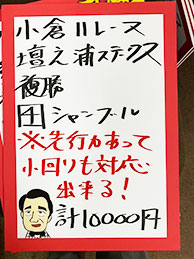 小倉11レース
壇之浦ステークス
複勝
田シャンブル
※先行力あって
小回りも対応
出来る!
計10000円